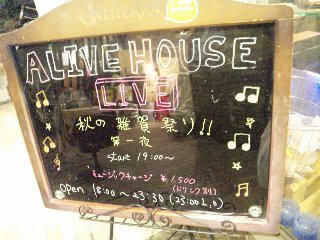 CALIFORNIA
ALIVE HOUSE
LIVE!
秋の雑賀祭り!!
第一夜
start 19:00〜
ミュージックチャージ ¥1.500
(ドリンク別)
open 18:00〜23:30 (23:00 L.O)